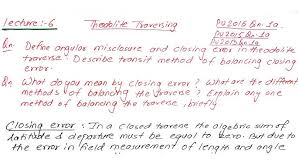 Lecture:-6 Theodolite Traversing PU2015 Qn.1a
PU2015 Qn.1a
PU2013 Qn.1a
Qn. Define angular misclosure and closing error in theodolite
traverse. Describe transit method of balancing closing
error.
Qn. What do you mean by closing error? What are the different
methods of balancing the traverse? Explain any one
method of balancing the traverse, briefly
Closing error : In a closed traverse the algebraic sum of
latitude & departure must be equal to zero. But due to
the error in field measurement of length and angle